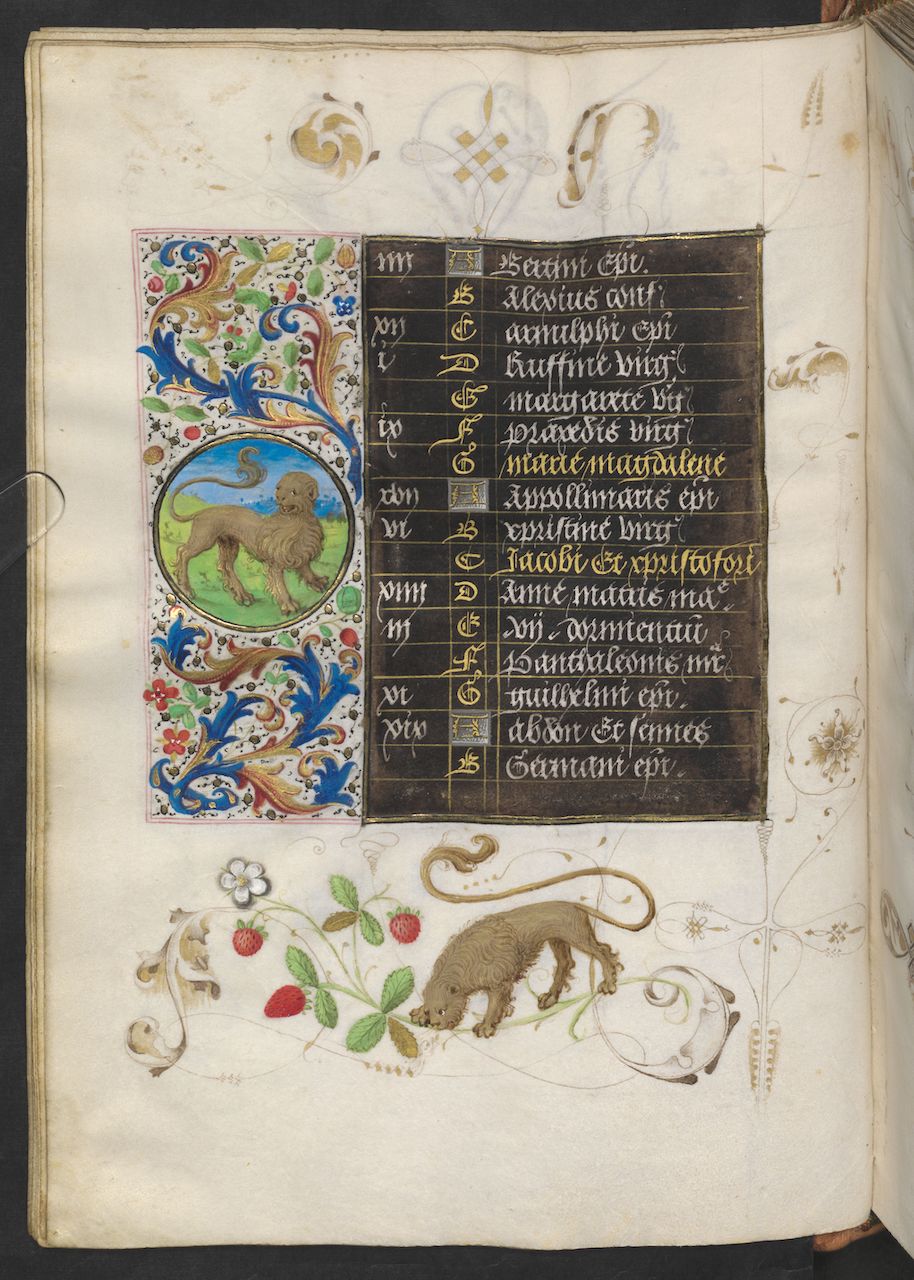 iiij A Bertini Epi.
B Alexius conf
xij C arnulphi Epi
i D Ruffine virg
E margarete v'g
ix F praxedis virg
G marie magdalene
xvij A Appollinaris epi
vi B xpristine virg
C Jacobi Et xpristofori
xiiij D Anne matris ma
iij E vij dormienciu
F Panthaleonis mr
xi G guillelmi epi.
xix A abdon Et sennes
B Germani epi.